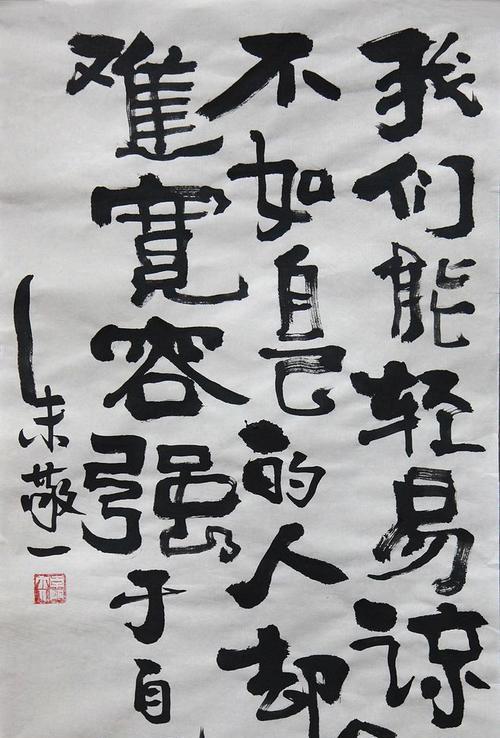 我们能轻易谅
不如自己的人却
难宽容强于自
朱敬一